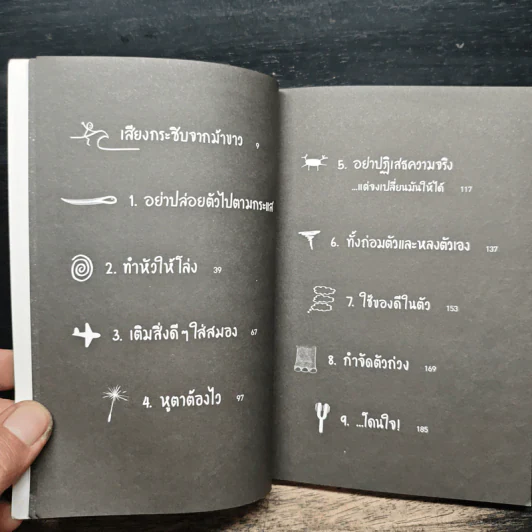 เสียงกระซิบจากม้าขาว 9
1. อย่าปล่อยตัวไปตามกระแส
2. ทำหัวให้โล่ง 39
3. เติมสิ่งดีๆ ใส่สมอง 67
4. หูตาต้องไว 97
5. อย่าปฏิเสธความจริง
...แต่จงเปลี่ยนมันให้ได้ 117
6. ทั้งถ่อมตัวและหลงตัวเอง 137
7. ใช้ของดีในตัว 153
8. กำจัดตัวถ่วง 169
9. ...โดนใจ! 185